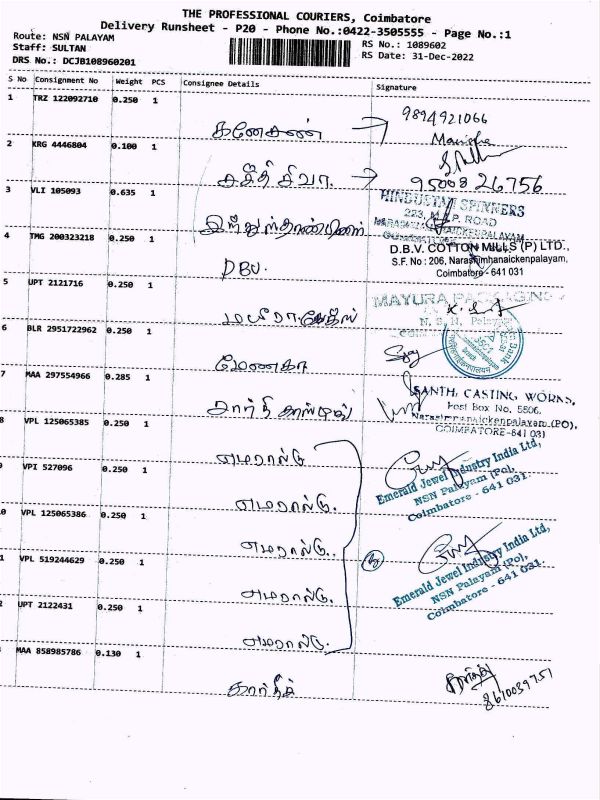 THE PROFESSIONAL COURIERS, Coimbatore
Delivery Runsheet - P20 - Phone No.:0422-3505555 - Page No.:1
Route: NSN PALAYAM
RS No.: 1089602
Staff: SULTAN
RS Date: 31-Dec-2022
DRS No.: DCJB108960201
S No Consignment No Weight PCS Consignee Details Signature
1 TRZ 122092710 0.250 1
9894921066
கணேசன் →
2 KRG 4446804 0.100 1
சக்தி சிவா. → 9500826756
3 VLI 105093 0.635 1
HINDUSTAN SPINNERS
223, M.T.P. ROAD
NARASIMHANAICKENPALAYAM
4 TMG 200323218 0.250 1
D.B.V. COTTON MILLS (P) LTD.,
S.F. No : 206, Narasimhanaickenpalayam,
Coimbatore - 641 031
DBV.
5 UPT 2121716 0.250 1
MAYURA PACKAGING
6 BLR 2951722962 0.250 1
மேனகா
7 MAA 297554966 0.285 1
SANTH CASTING WORKS,
Post Box No. 5806,
Narasimhanaickenpalayam (PO),
COIMBATORE-641 031
8 VPL 125065385 0.250 1
எமரால்டு
9 VPI 527096 0.250 1
எமரால்டு.
Emerald Jewel Industry India Ltd,
NSN Palayam (Po),
Coimbatore - 641 031.
0 VPL 125065386 0.250 1
எமரால்டு.
1 VPL 519244629 0.250 1
எமரால்டு.
Emerald Jewel Industry India Ltd,
NSN Palayam (Po),
Coimbatore - 641 031.
2 UPT 2122431 0.250 1
எமரால்டு.
MAA 858985786 0.130 1
கார்தீக்
8610039751